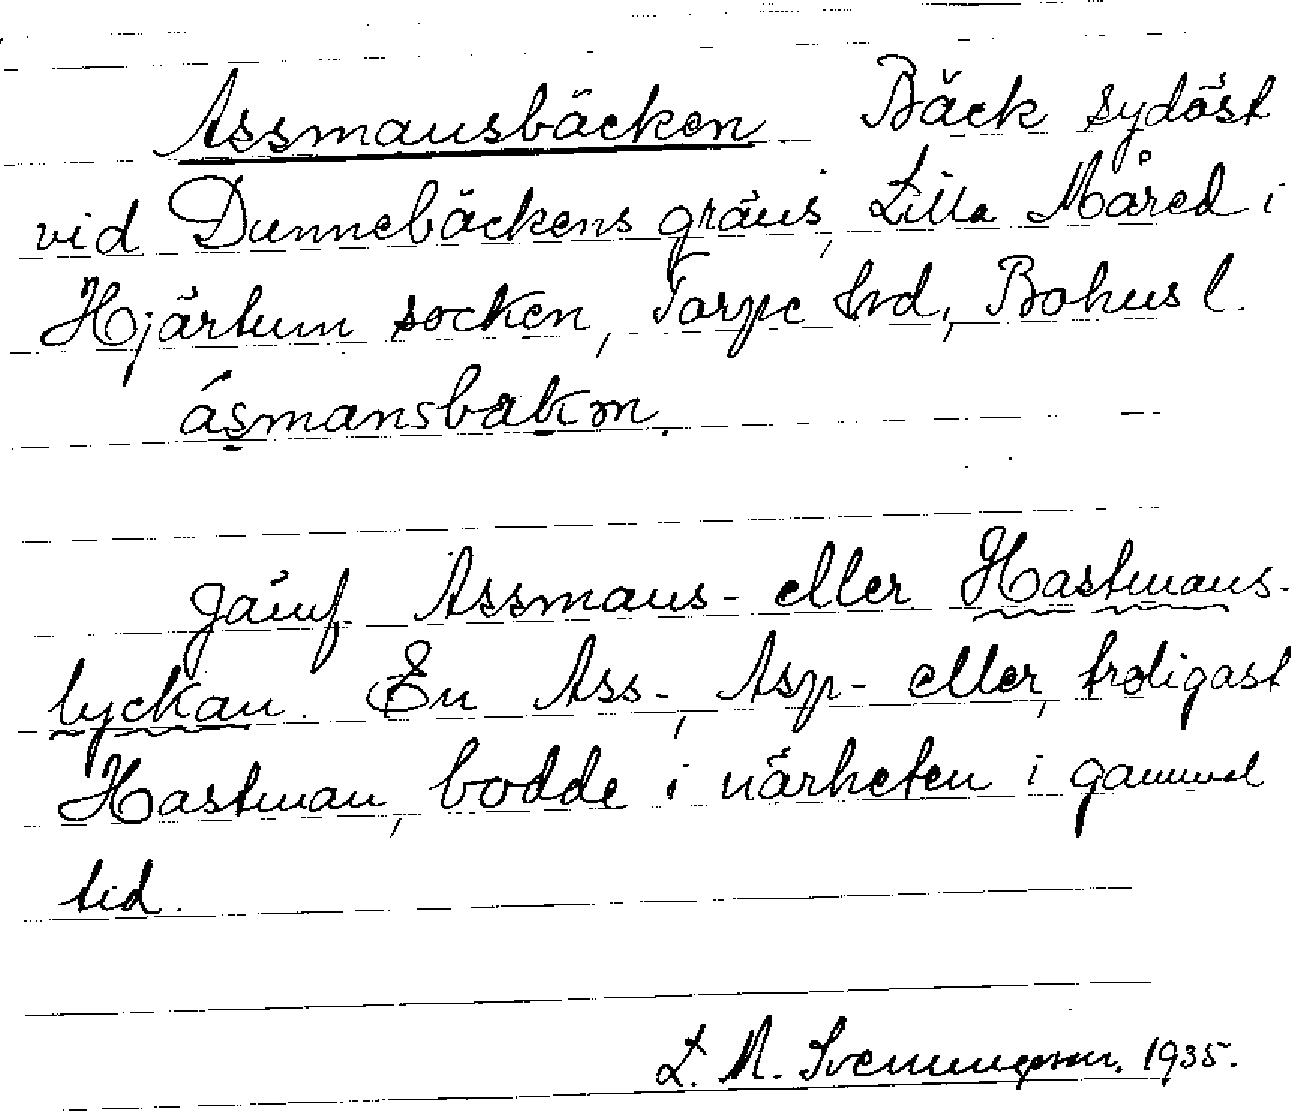 Assmansbäcken Bäck sydöst
vid Dunnebäckens gräns, Lilla Måred i
Hjärtum socken, Torpe hrd, Bohus l.
ásmansbakm.
Jämf. Assmans- eller Hastmans-
lyckan. En Ass-, Asp- eller, troligast
Hastman, bodde i närheten i gammel
tid.
L. M. Svenungsson. 1935.